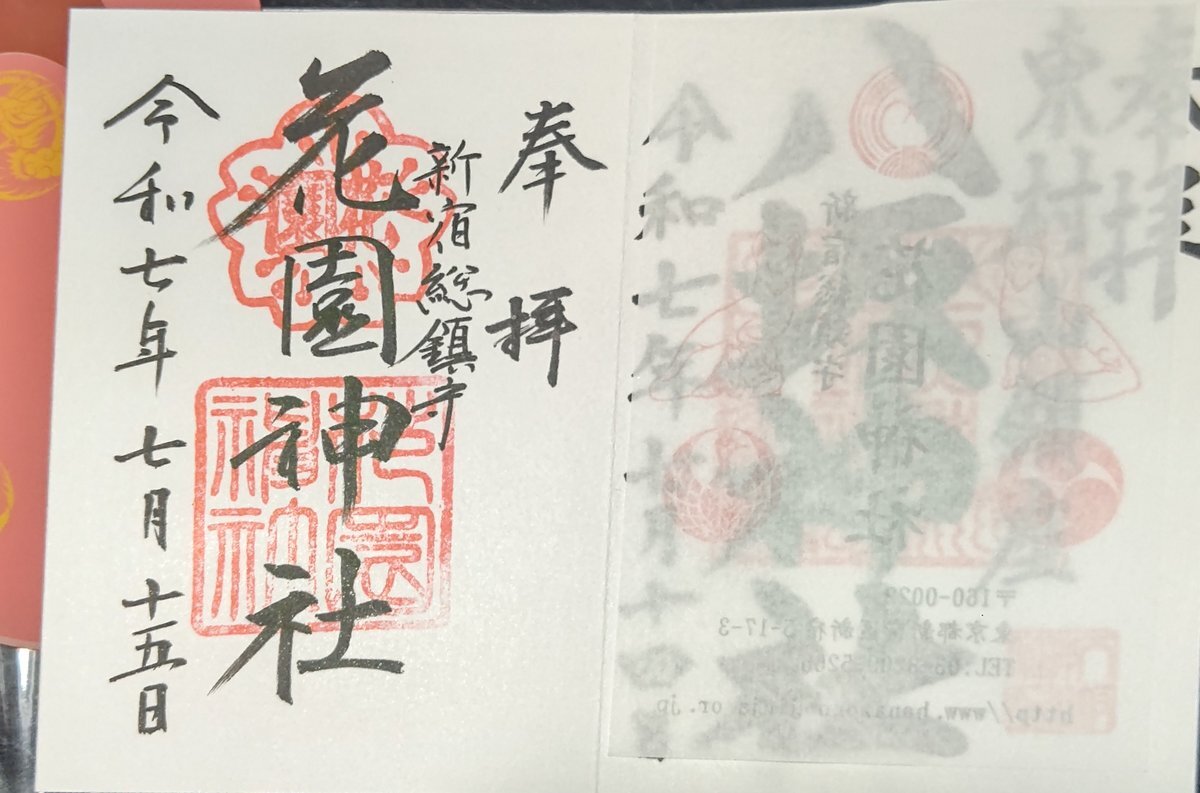 奉拝
東村山
八坂神社
令和七年七月十四日
新宿総鎮守
花園神社
〒160-0022
東京都新宿区新宿5-17-3
奉拝
新宿総鎮守
花園神社
花園神社
令和七年七月十五日